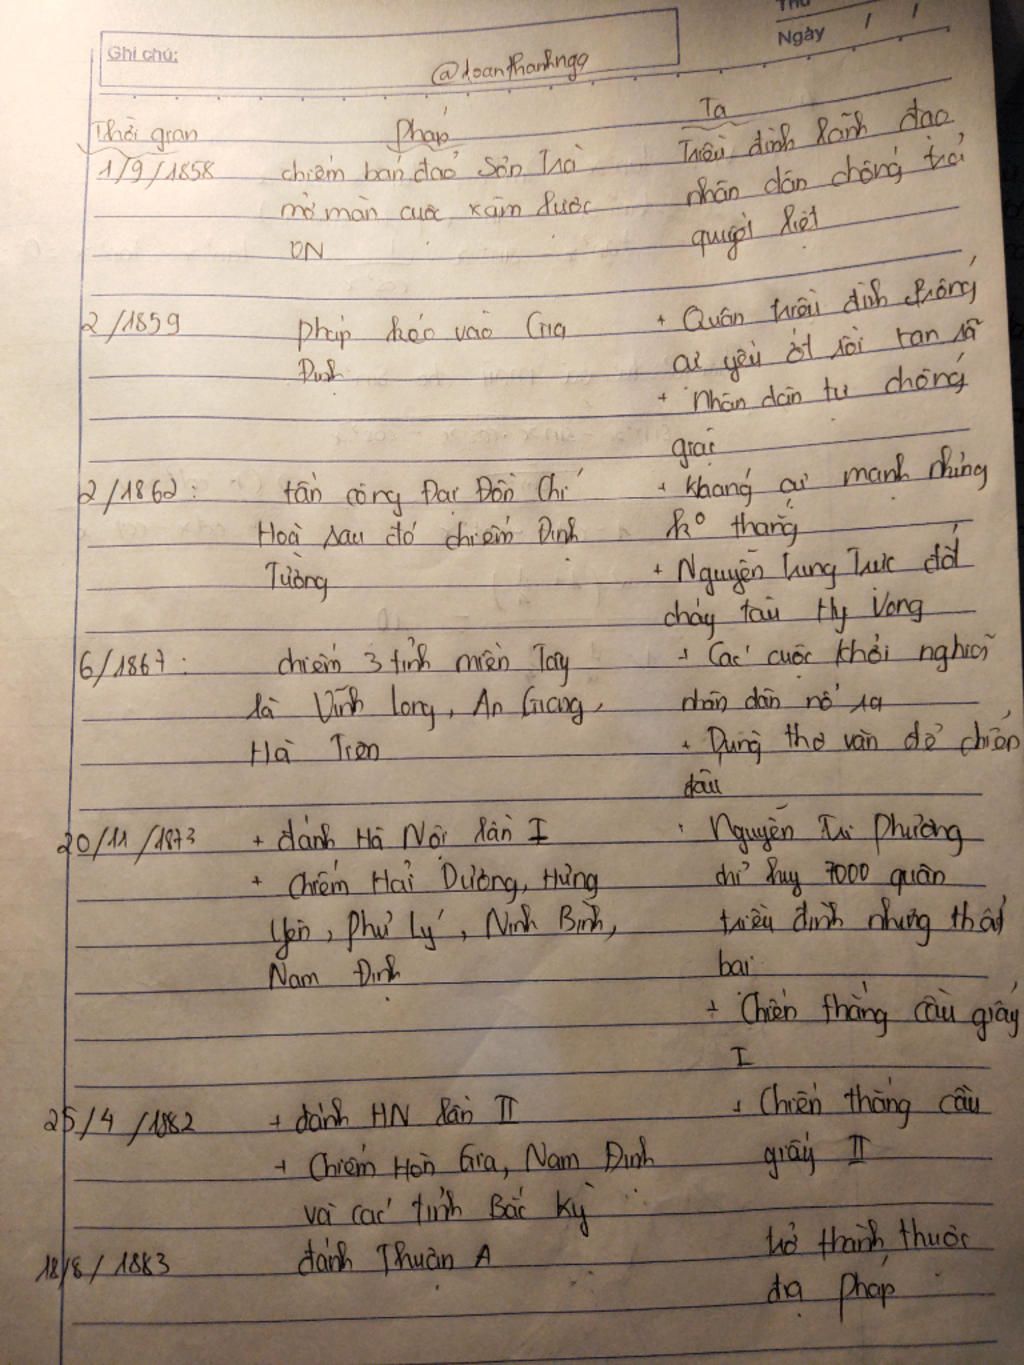 Thứ
Ghi chú:
Ngày / /
@doanthanhngo
Thời gian Pháp Ta
1/9/1858 chiếm bán đảo Sơn Trà Triều đình lãnh đạo
mở màn cuộc xâm lược nhân dân chống trả
ĐN quyết liệt
2/1859 Pháp kéo vào Gia + Quân triều đình chống
Định cự yếu ớt rồi tan rã
+ Nhân dân tự chống
giặc
2/1862: tấn công Đại Đồn Chí + kháng cự mạnh nhưng
Hoà sau đó chiếm Định k° thắng
Tường + Nguyễn Trung Trực đốt
cháy tàu Hy Vọng
6/1867: chiếm 3 tỉnh miền Tây + Các cuộc khởi nghĩa
là Vĩnh Long, An Giang, nhân dân nổ ra
Hà Tiên + Dùng thơ văn để chiến
đấu
20/11/1873 + đánh Hà Nội lần I + Nguyễn Tri Phương
+ Chiếm Hải Dương, Hưng chỉ huy 7000 quân
Yên, Phủ Lý, Ninh Bình, triều đình nhưng thất
Nam Định bại
+ Chiến thắng cầu giấy
I
25/4/1882 + đánh HN lần II + Chiến thắng cầu
+ Chiếm Hòn Gia, Nam Định giấy II
và các tỉnh Bắc Kỳ
18/8/1883 đánh Thuận A trở thành thuộc
địa Pháp